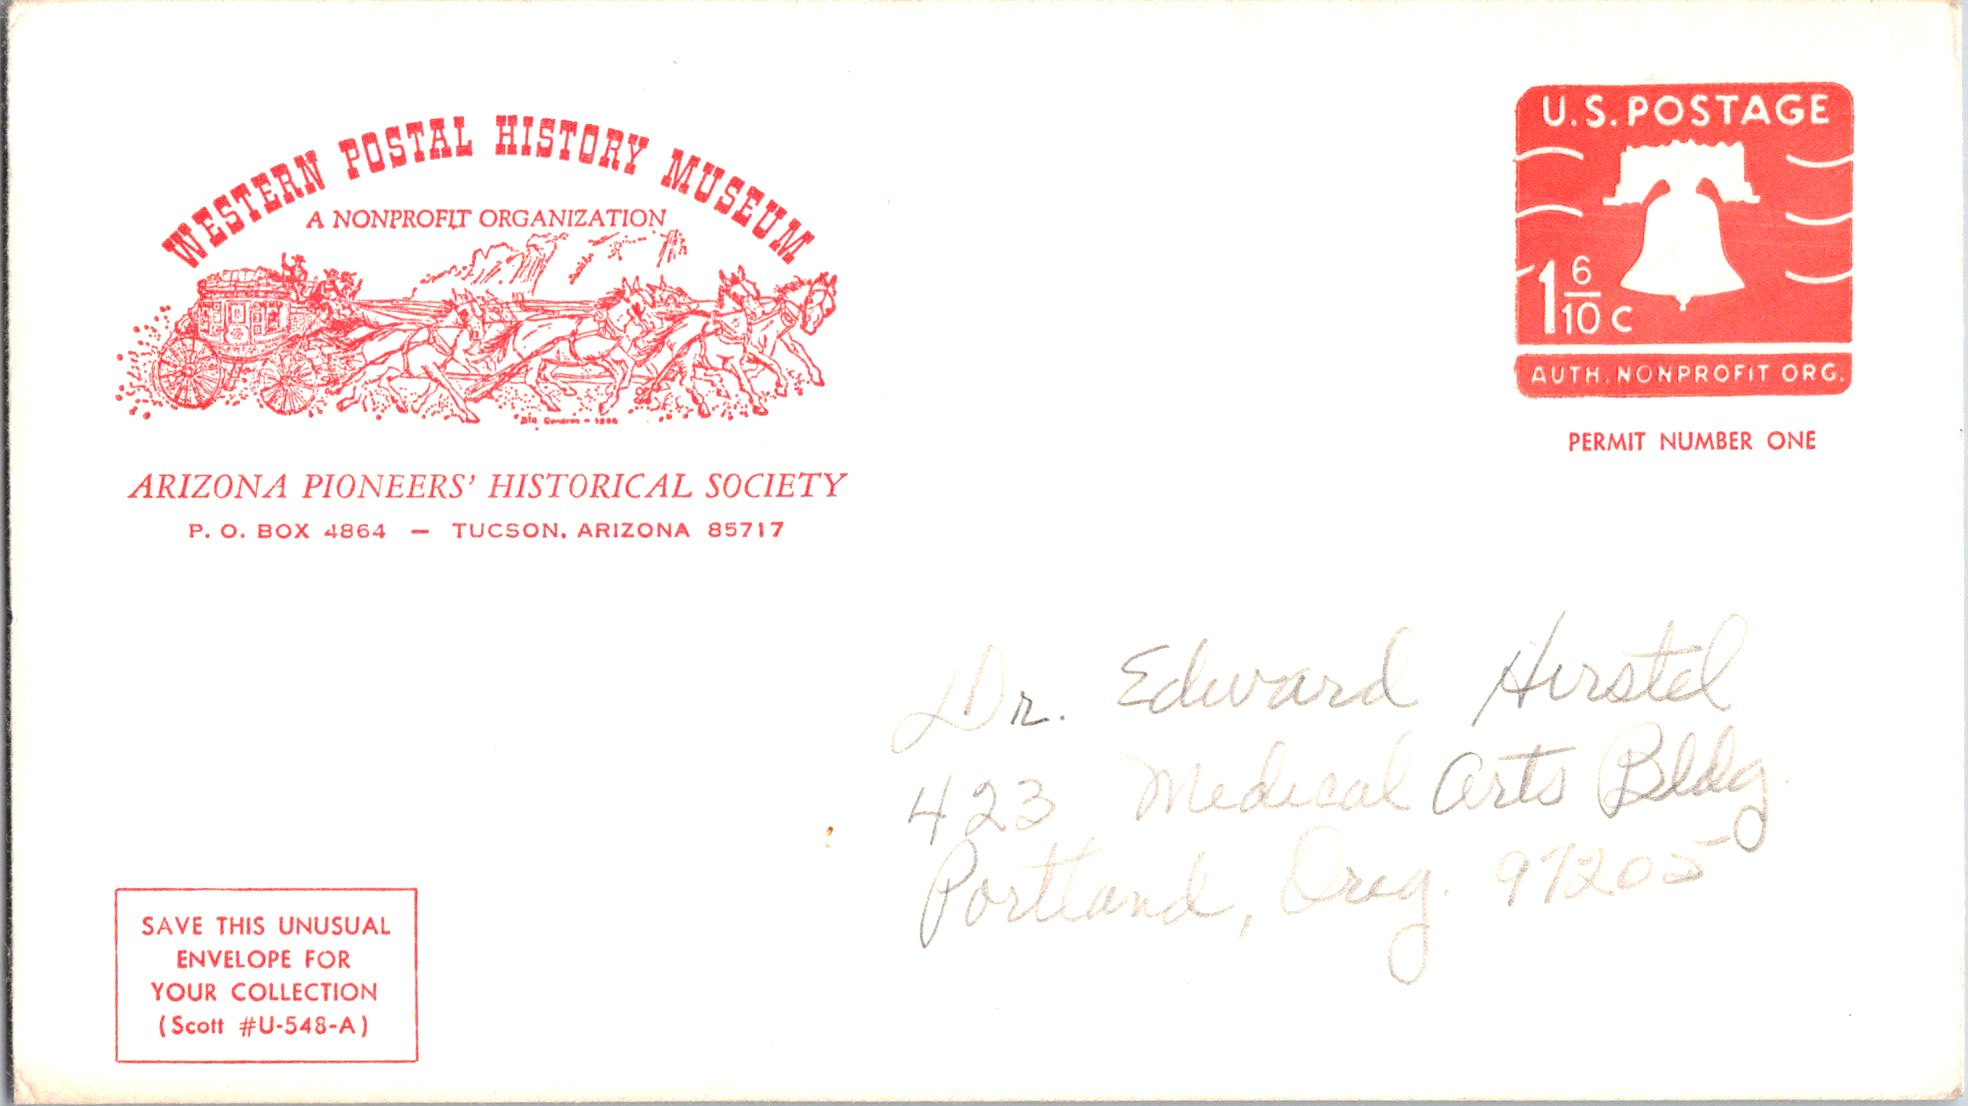 WESTERN POSTAL HISTORY MUSEUM
A NONPROFIT ORGANIZATION
ARIZONA PIONEERS' HISTORICAL SOCIETY
P. O. BOX 4864 — TUCSON, ARIZONA 85717
U.S. POSTAGE
1 6/10 c
AUTH. NONPROFIT ORG.
PERMIT NUMBER ONE
Dr. Edward Hirstel
423 Medical Arts Bldg.
Portland, Oreg. 97205
SAVE THIS UNUSUAL
ENVELOPE FOR
YOUR COLLECTION
(Scott #U-548-A)